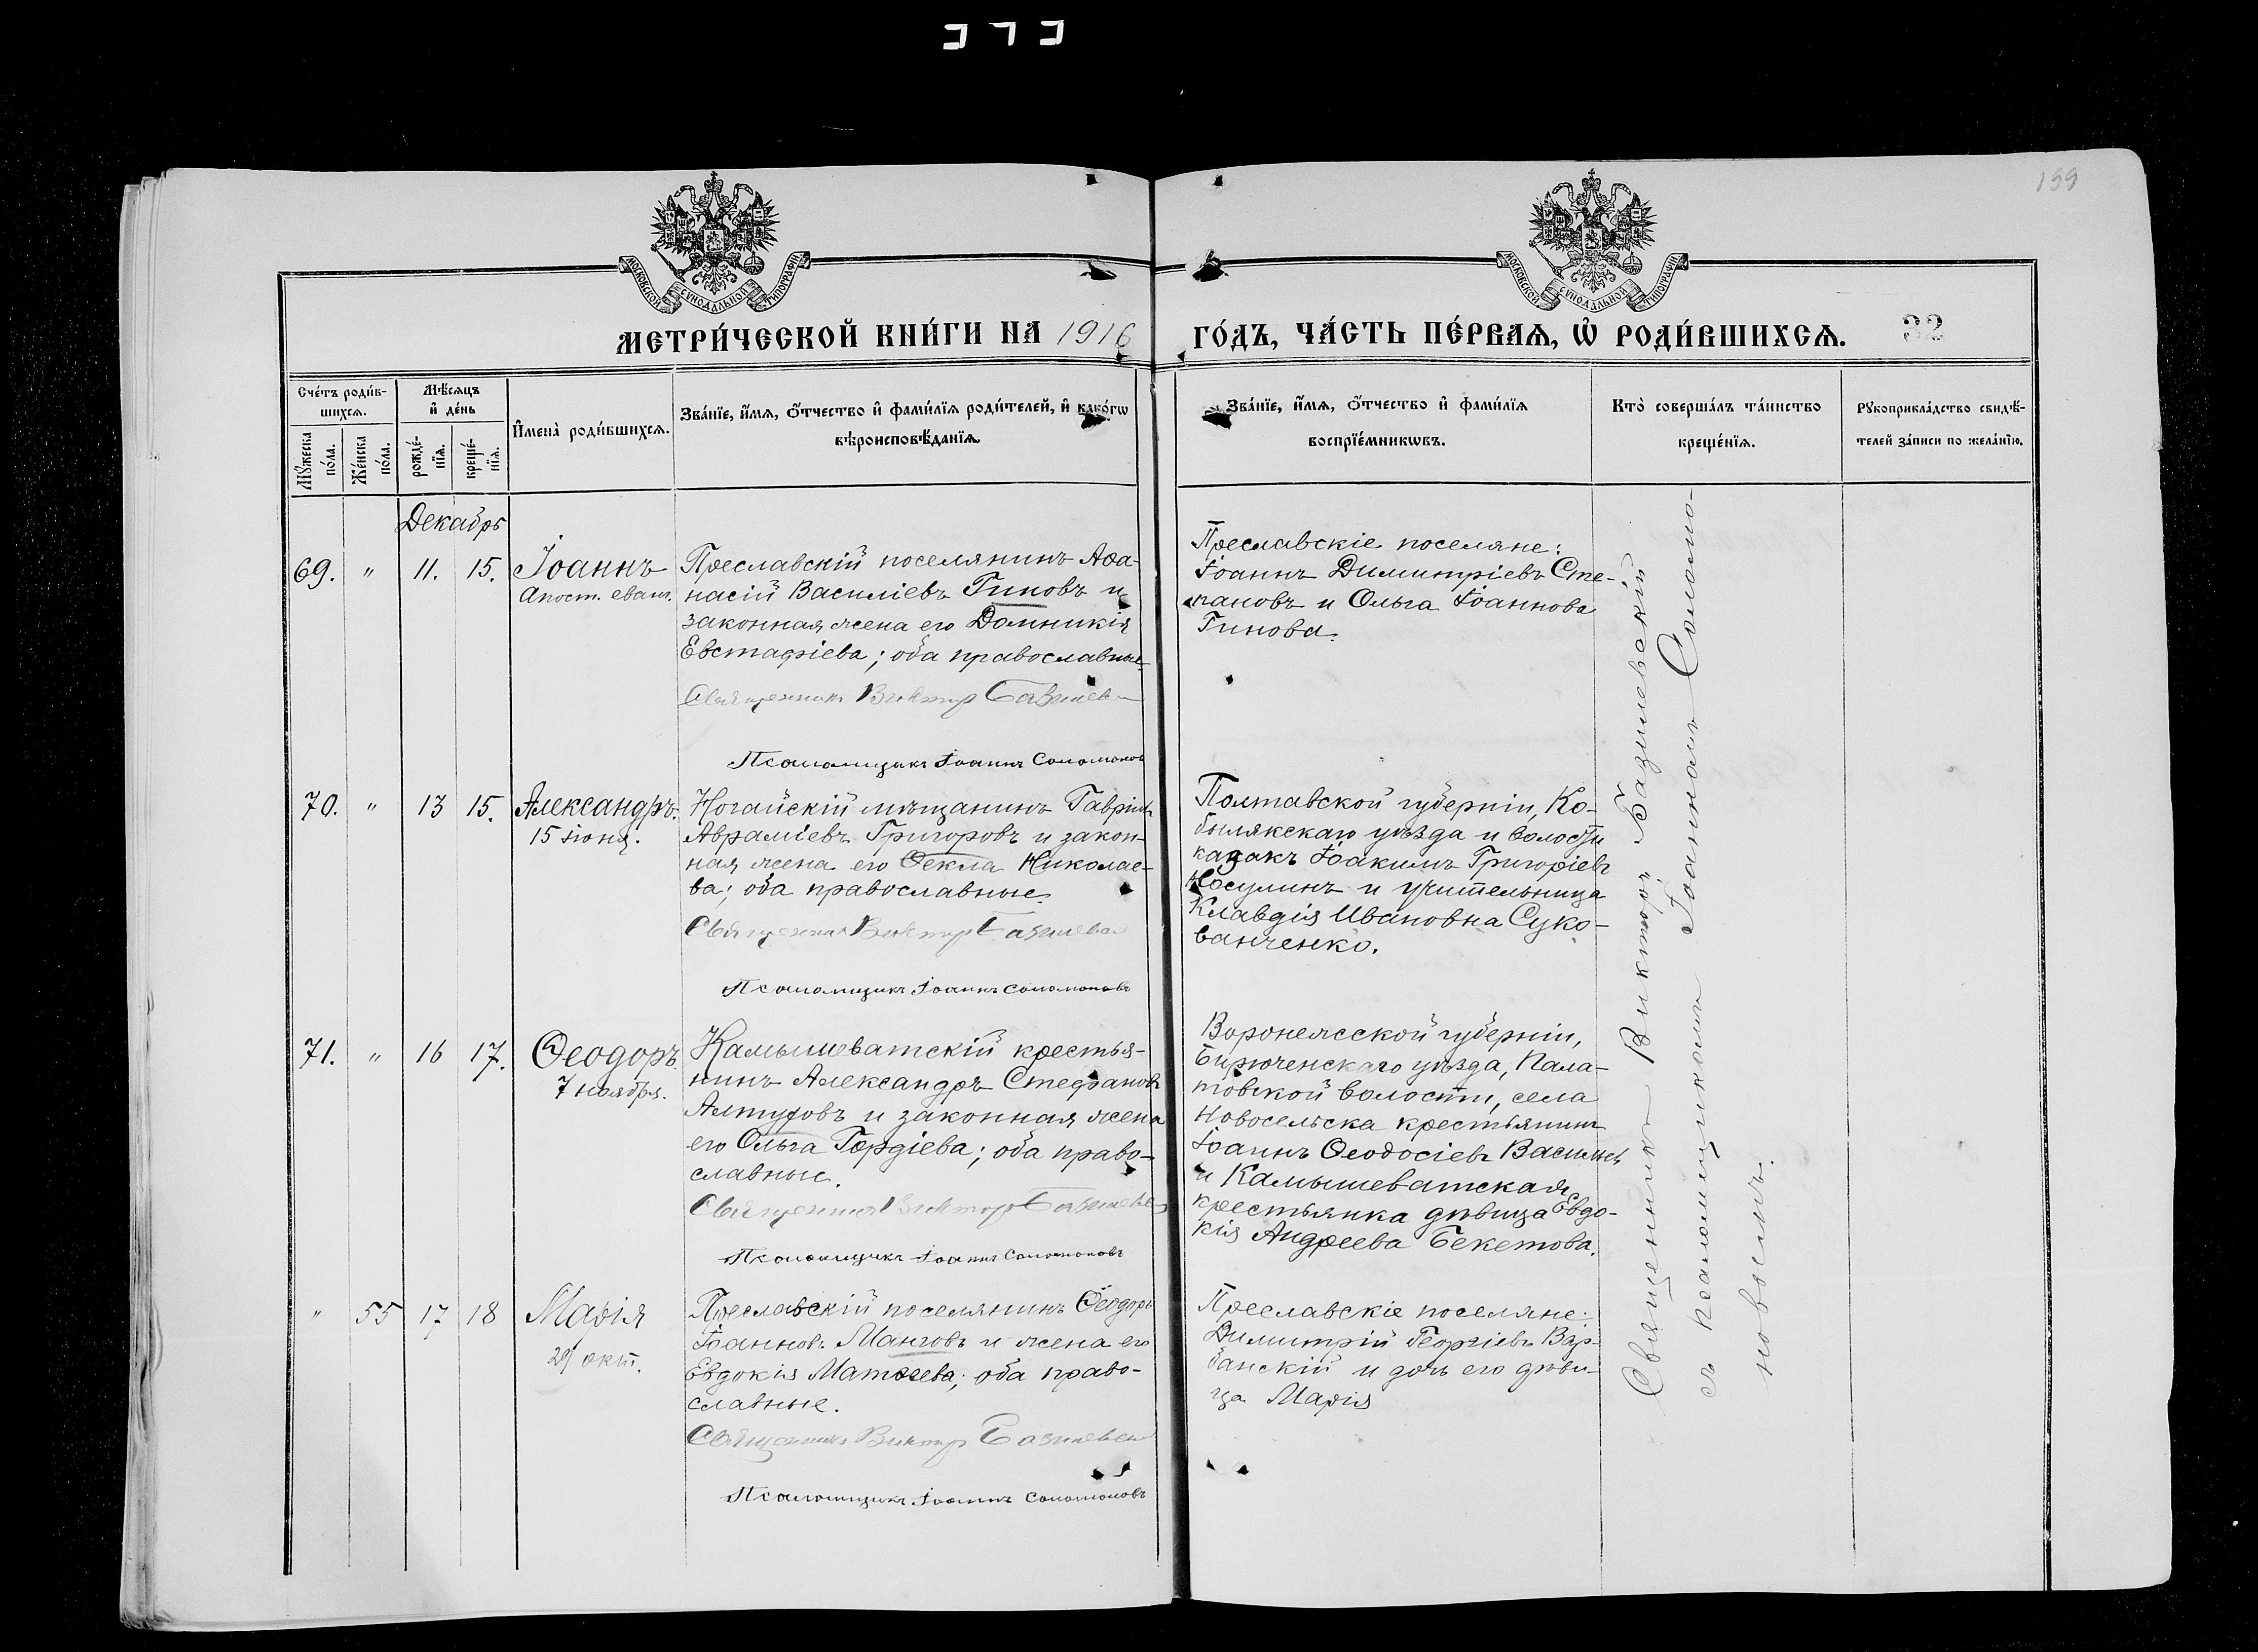 199
МОСКОВСКОЙ СѴНОДАЛЬНОЙ ТИПОГРАФІИ
МОСКОВСКОЙ СѴНОДАЛЬНОЙ ТИПОГРАФІИ
МЕТРИ́ЧЕСКОЙ КНИ́ГИ НА 1916
ГО́ДЪ, ЧА́СТЬ ПЕ́РВАѦ, Ѡ҆ РОДИ́ВШИХСѦ.
32
Сче́тъ роди́в-
шихсѧ.
Мꙋ́жеска
по́ла.
Же́нска
по́ла.
Мѣ́сѧцъ
и҆ де́нь
рожде́-
нїѧ.
креще́-
нїѧ.
И҆мена̀ роди́вшихсѧ.
Зва́нїе, и҆́мѧ, ѻ҆́тчество и҆ фами́лїѧ роди́телей, и҆ како́гѡ
вѣроисповѣ́данїѧ.
Зва́нїе, и҆́мѧ, ѻ҆́тчество и҆ фами́лїѧ
воспрїе́мникѡвъ.
Кто̀ соверша́лъ та́инство
креще́нїѧ.
Рꙋкоприкла́дство свидѣ́-
телей за́писи по жела́нїю.
Декабрь
69. " 11. 15. Іоаннъ
Апост. еванг.
Преславскій поселянинъ Аѳа-
насій Василіевъ Гиновъ и
законная жена его Домникія
Евстафіева; оба православные.
Священникъ Викторъ Базилев
Псаломщикъ Іоаннъ Соломоновъ
Преславскіе поселяне:
Іоаннъ Димитріевъ Сте-
пановъ и Ольга Іоаннова
Гинова.
70. " 13 15. Александръ.
15 іюня.
Ногайскій мѣщанинъ Гавріилъ
Авраміевъ Григоровъ и закон-
ная жена его Ѳекла Николае-
ва; оба православные.
Священникъ Викторъ Базилевск
Псаломщикъ Іоаннъ Соломоновъ
Полтавской губерніи, Ко-
былякскаго уѣзда и волости
казакъ Іоакимъ Григоріевъ
Носулинъ и учительница
Клавдія Ивановна Суко-
ванченко.
71. " 16 17. Ѳеодоръ.
7 ноября.
Камышеватскій крестья-
нинъ Александръ Стефановъ
Алтуховъ и законная жена
его Ольга Гордіева; оба право-
славные.
Священникъ Викторъ Базилевс
Псаломщикъ Іоаннъ Соломоновъ
Воронежской губерніи,
Бирюченскаго уѣзда, Пала-
товской волости, села
Новосельска крестьянинъ
Іоаннъ Ѳеодосіевъ Васильевъ
и Камышеватская
крестьянка дѣвица Евдо-
кія Андреева Бекетова.
" 55 17 18 Марія
29 окт.
Преславскій поселянинъ Ѳеодоръ
Іоанновъ Манговъ и жена его
Евдокія Матѳеева; оба право-
славные.
Священникъ Викторъ Базилевск
Псаломщикъ Іоаннъ Соломоновъ
Преславскіе поселяне:
Димитрій Георгіевъ Вар-
банскій и дочь его дѣви-
ца Марія
Священникъ Викторъ Базилевскій
съ псаломщикомъ Іоанномъ Соломо-
новымъ.